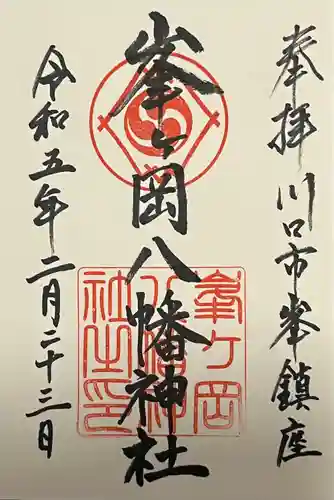 奉拝 川口市峯鎮座
峯ヶ岡八幡神社
峯ケ岡
八幡神
社之印
令和五年二月二十三日